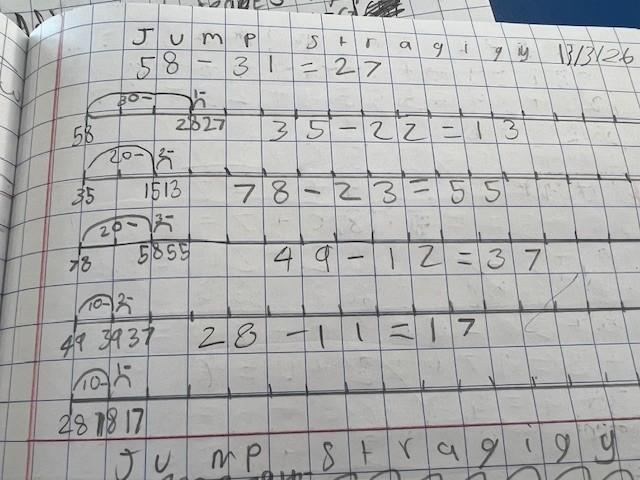 Jump stragigy 13/3/26
58 - 31 = 27
30- 1-
58 28 27 35 - 22 = 13
20- 2-
35 15 13 78 - 23 = 55
20- 3-
78 58 55 49 - 12 = 37
10- 2-
49 39 37 28 - 11 = 17
10- 1-
28 18 17
Jump stragigy